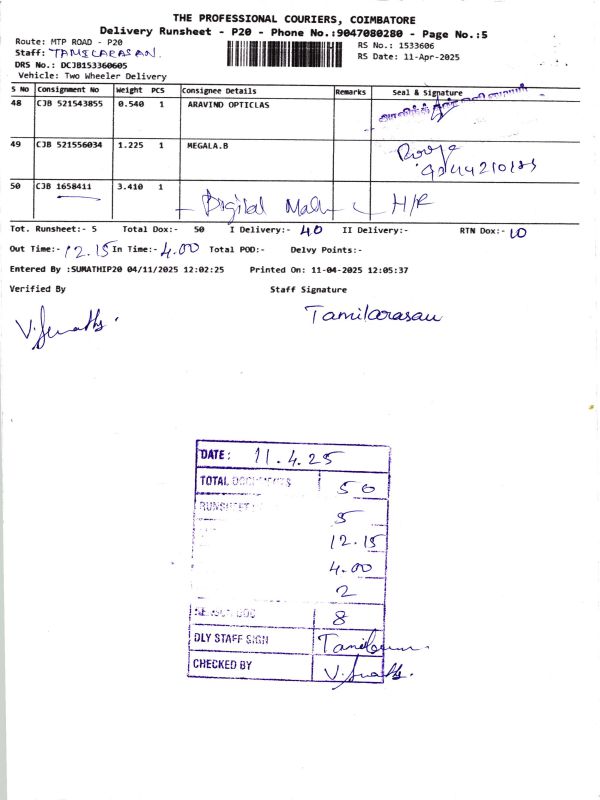 THE PROFESSIONAL COURIERS, COIMBATORE
Delivery Runsheet - P20 - Phone No.:9047080280 - Page No.:5
Route: MTP ROAD - P20
RS No.: 1533606
Staff: TAMILARASAN.
RS Date: 11-Apr-2025
DRS No.: DCJB153360605
Vehicle: Two Wheeler Delivery
S No Consignment No Weight PCS Consignee Details Remarks Seal & Signature
48 CJB 521543855 0.540 1 ARAVIND OPTICLAS
49 CJB 521556034 1.225 1 MEGALA.B
50 CJB 1658411 3.410 1 Digital H/R
Tot. Runsheet:- 5 Total Dox:- 50 I Delivery:- 40 II Delivery:- RTN Dox:- 10
Out Time:- 12.15 In Time:- 4.00 Total POD:- Delvy Points:-
Entered By :SUMATHIP20 04/11/2025 12:02:25 Printed On: 11-04-2025 12:05:37
Verified By Staff Signature
Tamilarasan
DATE: 11.4.25
TOTAL DOCUMENTS 50
RUNSHEET 5
12.15
4.00
2
8
DLY STAFF SIGN
CHECKED BY